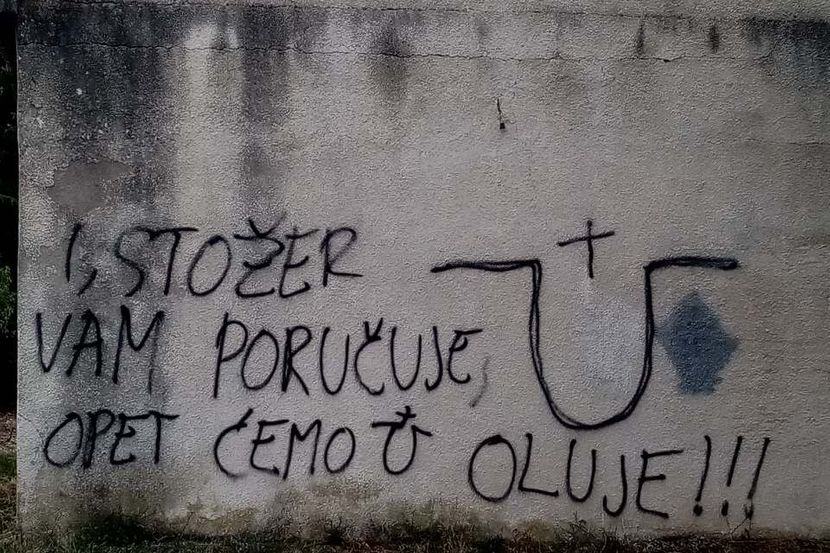 I, STOŽER
VAM PORUČUJE,
OPET ĆEMO U OLUJE!!!
U